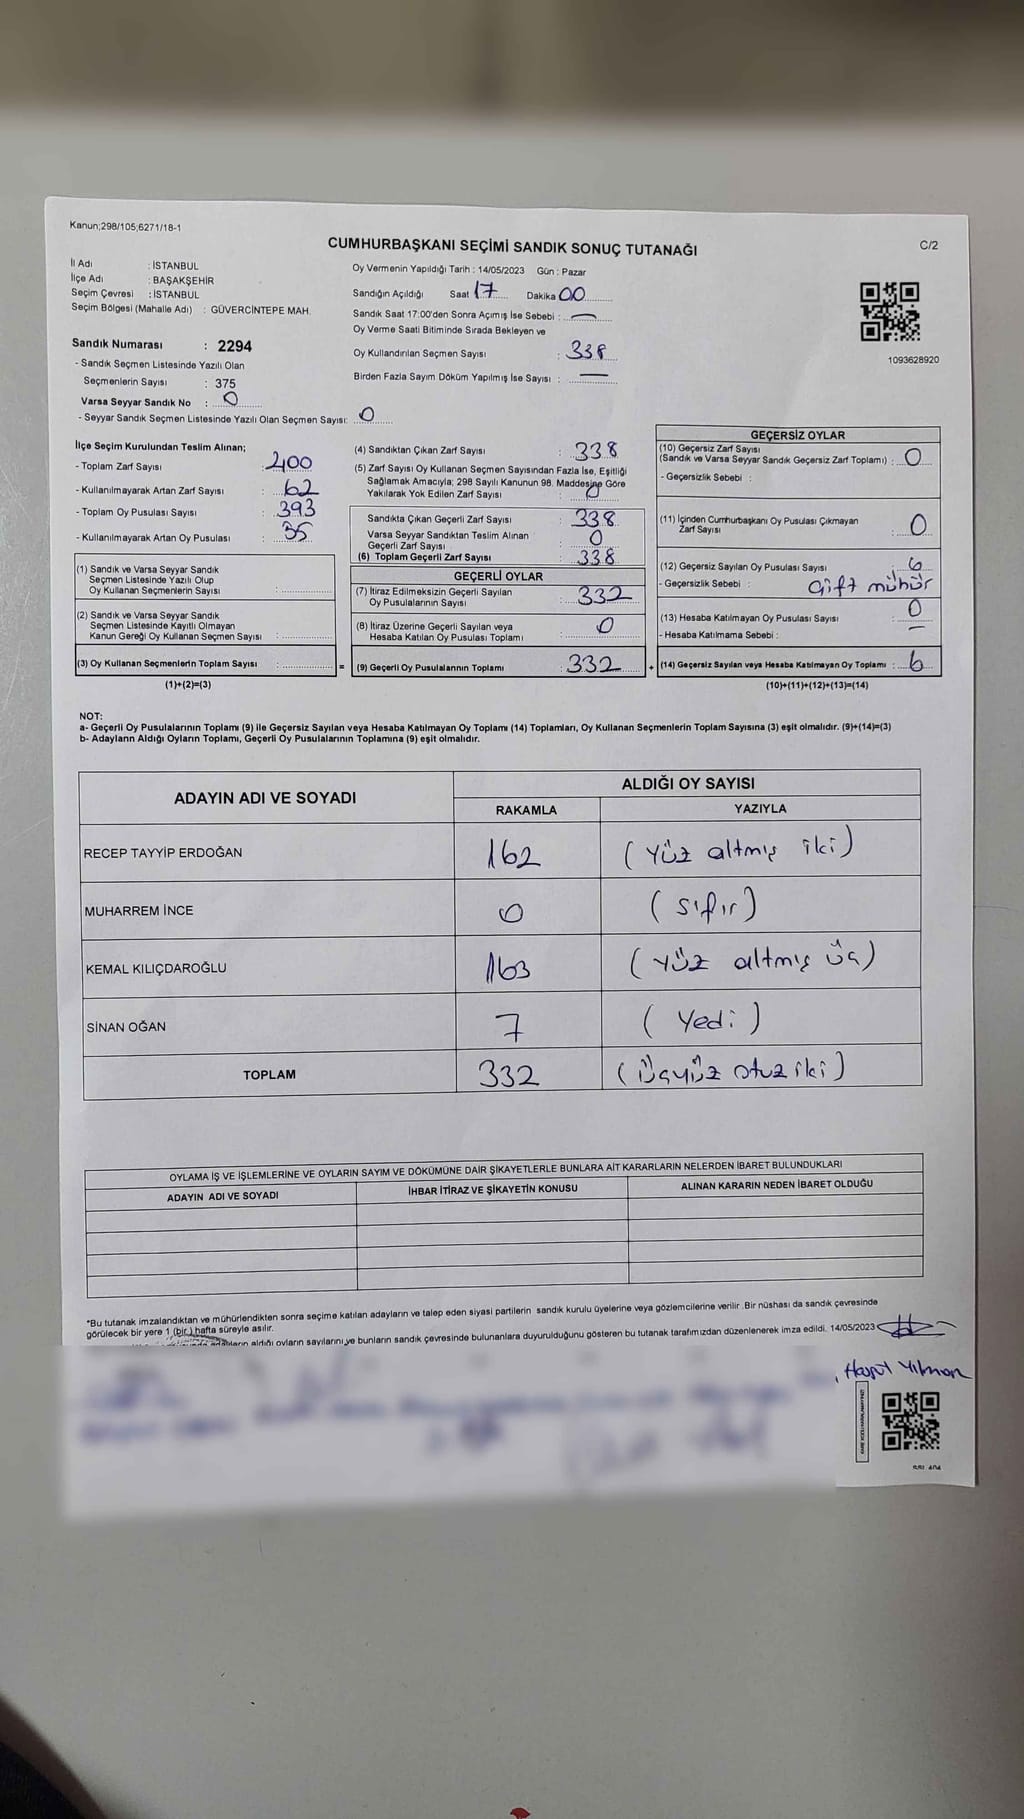 Kanun;298/105;6271/18-1
CUMHURBAŞKANI SEÇİMİ SANDIK SONUÇ TUTANAĞI
C/2
İl Adı : İSTANBUL
İlçe Adı : BAŞAKŞEHİR
Seçim Çevresi : İSTANBUL
Seçim Bölgesi (Mahalle Adı) : GÜVERCİNTEPE MAH.
Sandık Numarası : 2294
- Sandık Seçmen Listesinde Yazılı Olan
Seçmenlerin Sayısı : 375
Varsa Seyyar Sandık No : 0
- Seyyar Sandık Seçmen Listesinde Yazılı Olan Seçmen Sayısı: 0
Oy Vermenin Yapıldığı Tarih : 14/05/2023 Gün : Pazar
Sandığın Açıldığı Saat 17 Dakika 00
Sandık Saat 17:00'den Sonra Açımış İse Sebebi : —
Oy Verme Saati Bitiminde Sırada Bekleyen ve
Oy Kullandırılan Seçmen Sayısı : 338
Birden Fazla Sayım Döküm Yapılmış İse Sayısı : —
1093628920
İlçe Seçim Kurulundan Teslim Alınan;
- Toplam Zarf Sayısı : 400
- Kullanılmayarak Artan Zarf Sayısı : 62
- Toplam Oy Pusulası Sayısı : 393
- Kullanılmayarak Artan Oy Pusulası : 35
(1) Sandık ve Varsa Seyyar Sandık
Seçmen Listesinde Yazılı Olup
Oy Kullanan Seçmenlerin Sayısı :
(2) Sandık ve Varsa Seyyar Sandık
Seçmen Listesinde Kayıtlı Olmayan
Kanun Gereği Oy Kullanan Seçmen Sayısı :
(3) Oy Kullanan Seçmenlerin Toplam Sayısı :
(1)+(2)=(3)
(4) Sandıktan Çıkan Zarf Sayısı : 338
(5) Zarf Sayısı Oy Kullanan Seçmen Sayısından Fazla İse, Eşitliği
Sağlamak Amacıyla; 298 Sayılı Kanunun 98. Maddesine Göre
Yakılarak Yok Edilen Zarf Sayısı : 0
Sandıkta Çıkan Geçerli Zarf Sayısı : 338
Varsa Seyyar Sandıktan Teslim Alınan
Geçerli Zarf Sayısı : 0
(6) Toplam Geçerli Zarf Sayısı : 338
GEÇERLİ OYLAR
(7) İtiraz Edilmeksizin Geçerli Sayılan
Oy Pusulalarının Sayısı : 332
(8) İtiraz Üzerine Geçerli Sayılan veya
Hesaba Katılan Oy Pusulası Toplamı : 0
= (9) Geçerli Oy Pusulalarının Toplamı : 332 +
GEÇERSİZ OYLAR
(10) Geçersiz Zarf Sayısı
(Sandık ve Varsa Seyyar Sandık Geçersiz Zarf Toplamı) : 0
- Geçersizlik Sebebi :
(11) İçinden Cumhurbaşkanı Oy Pusulası Çıkmayan
Zarf Sayısı : 0
(12) Geçersiz Sayılan Oy Pusulası Sayısı : 6
- Geçersizlik Sebebi : Çift mühür
(13) Hesaba Katılmayan Oy Pusulası Sayısı : 0
- Hesaba Katılmama Sebebi : —
(14) Geçersiz Sayılan veya Hesaba Katılmayan Oy Toplamı : 6
(10)+(11)+(12)+(13)=(14)
NOT:
a- Geçerli Oy Pusulalarının Toplamı (9) ile Geçersiz Sayılan veya Hesaba Katılmayan Oy Toplamı (14) Toplamları, Oy Kullanan Seçmenlerin Toplam Sayısına (3) eşit olmalıdır. (9)+(14)=(3)
b- Adayların Aldığı Oyların Toplamı, Geçerli Oy Pusulalarının Toplamına (9) eşit olmalıdır.
ADAYIN ADI VE SOYADI ALDIĞI OY SAYISI
RAKAMLA YAZIYLA
RECEP TAYYİP ERDOĞAN 162 (Yüz altmış iki)
MUHARREM İNCE 0 (sıfır)
KEMAL KILIÇDAROĞLU 163 (Yüz altmış üç)
SİNAN OĞAN 7 (Yedi)
TOPLAM 332 (Üçyüz otuz iki)
OYLAMA İŞ VE İŞLEMLERİNE VE OYLARIN SAYIM VE DÖKÜMÜNE DAİR ŞİKAYETLERLE BUNLARA AİT KARARLARIN NELERDEN İBARET BULUNDUKLARI
ADAYIN ADI VE SOYADI İHBAR İTİRAZ VE ŞİKAYETİN KONUSU ALINAN KARARIN NEDEN İBARET OLDUĞU
*Bu tutanak imzalandıktan ve mühürlendikten sonra seçime katılan adayların ve talep eden siyasi partilerin sandık kurulu üyelerine veya gözlemcilerine verilir .Bir nüshası da sandık çevresinde
görülecek bir yere 1 (bir ) hafta süreyle asılır.
aldığı oyların sayılarını ve bunların sandık çevresinde bulunanlara duyurulduğunu gösteren bu tutanak tarafımızdan düzenlenerek imza edildi. 14/05/2023